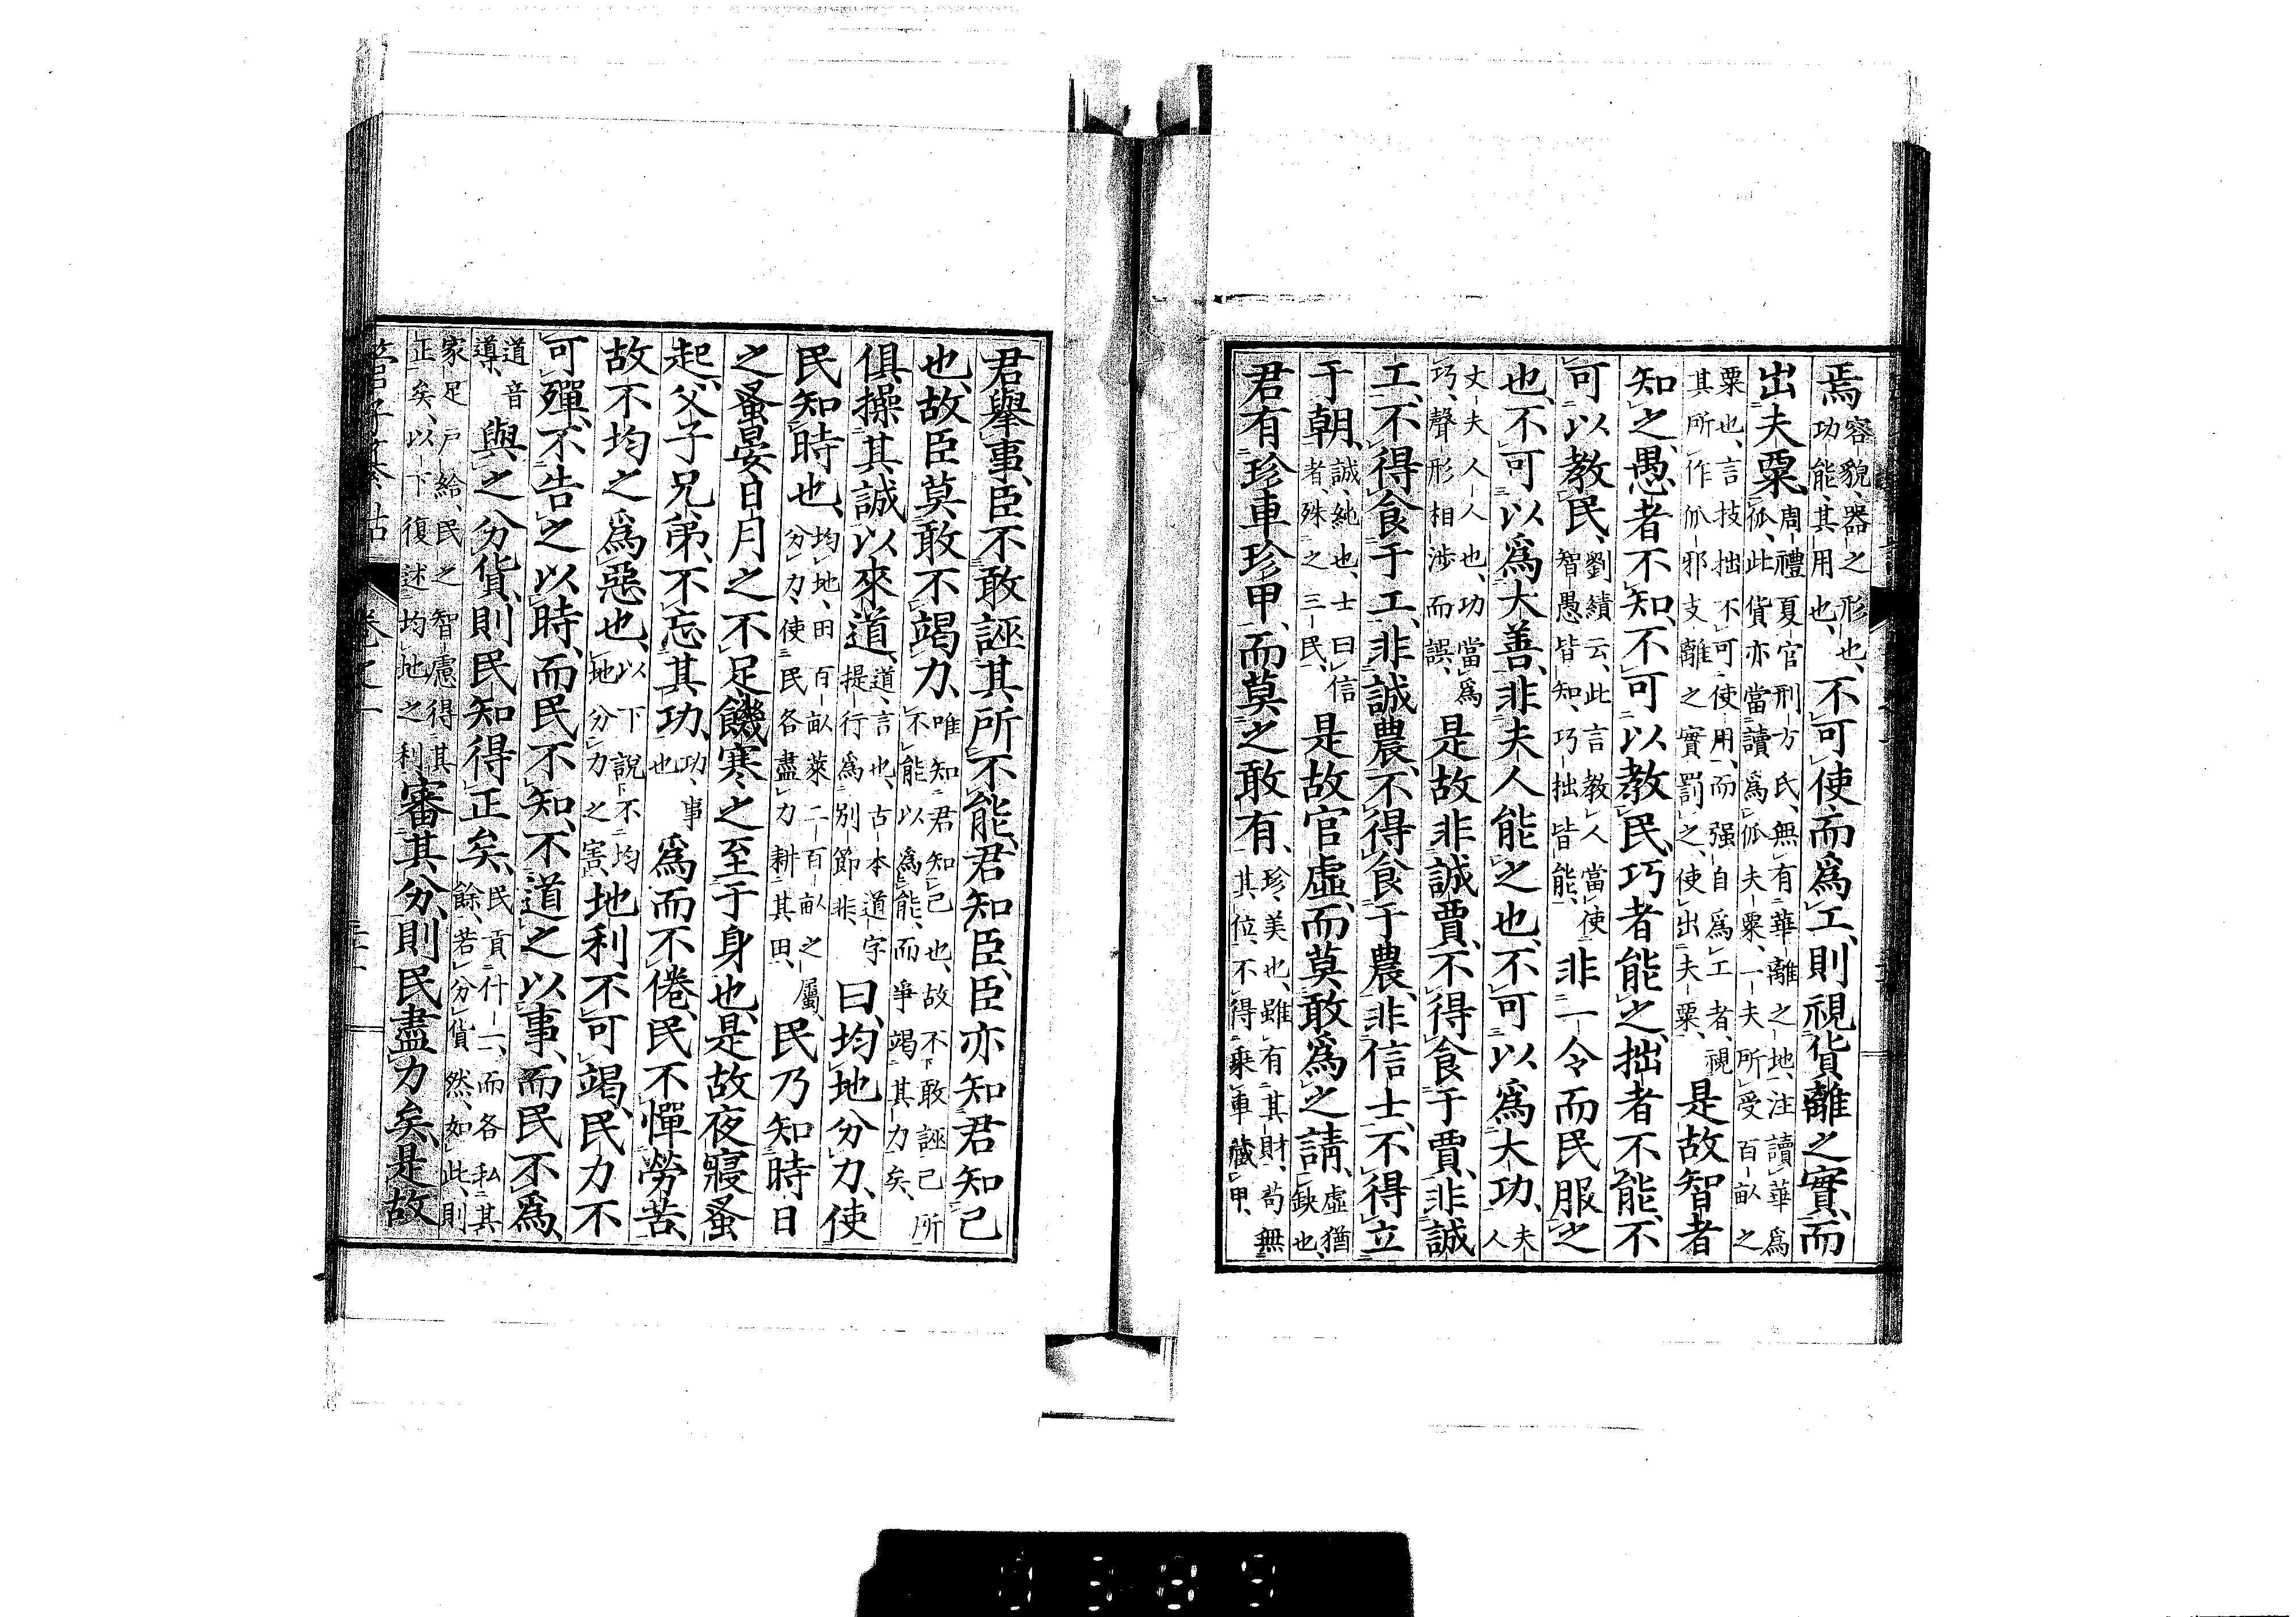 焉容貌、器之形也、功能、其用也、不可使而爲工、則視貨離之實、而
出夫粟、周禮夏官刑方氏、無有華離之地、注讀華爲㼌、此貨亦當讀爲㼌、夫粟、一夫所受百畝之
粟也、言技拙不可使用、而强自爲工者、視其所作㼌邪支離之實、罰之、使出夫粟、是故智者
知之、愚者不知、不可以教民、巧者能之、拙者不能、不
可以教民、劉績云、此言教人當使智愚皆知、巧拙皆能、非一令而民服之
也、不可以爲大善、非夫人能之也、不可以爲大功、夫人
丈夫人人也、功當爲巧、聲形相涉而誤、是故非誠賈、不得食于賈、非誠
工、不得食于工、非誠農、不得食于農、非信士、不得立
于朝、誠、純也、士曰信者、殊之三民、是故官虛、而莫敢爲之請、虛猶缺也、
君有珍車珍甲、而莫之敢有、珍、美也、雖有其財、苟無其位、不得乘車藏甲、
君舉事、臣不敢誣其所不能、君知臣、臣亦知君知己
也、故臣莫敢不竭力、唯知君知己也、故不敢誣己所不能以爲能、而爭竭其力矣、
俱操其誠以來道、道、言也、古本道字提行爲別節、非、曰、均地分力、使
民知時也、均地、田百畝萊二百畝之屬、分力、使民各盡力耕其田、民乃知時日
之蚤晏日月之不足饑寒之至于身也、是故夜寢蚤
起、父子兄弟、不忘其功、功、事也爲而不倦、民不憚勞苦、
故不均之爲惡也、以下說不均地分力之害、地利不可竭、民力不
可殫、不告之以時、而民不知、不道之以事、而民不爲、
道音導、與之分貨、則民知得正矣、民貢什一、而各私其餘、若分貨然、如此、則
家足戶給、民之智慮得其正矣、以下復述均地之利、審其分、則民盡力矣、是故
管子纂詁